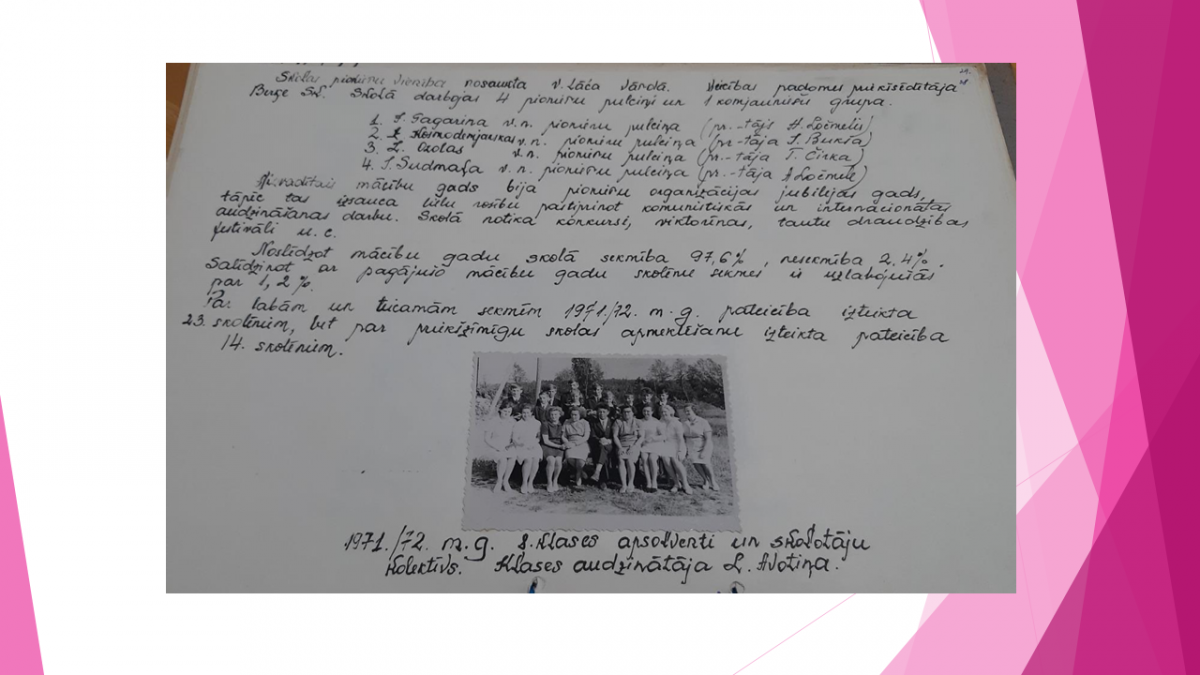 Skolas pionieru vienība nosaukta V. Lāča vārdā. Vienības padomes priekšsēdētāja
Berķe Sk. Skolā darbojas 4 pionieru pulciņi un 1 komjauniešu grupa.
1. J. Gagarina v.n. pionieru pulciņa (pr.-tājs H. Ločmelis)
2. Z. Kosmodemjanskas v.n. pionieru pulciņa (pr-tāja J. Bukša)
3. L. Ozolas v.n. pionieru pulciņa (pr.-tāja T. Čirka)
4. J. Sudmaļa v.n. pionieru pulciņa (pr.-tāja A Ločmele)
Aizvadītais mācību gads bija pionieru organizācijas jubilejas gads,
tāpēc tas izsauca lielu rosību pastiprinot komunistiskās un internacionālās
audzināšanas darbu. Skolā notika konkursi, viktorīnas, tautu draudzības
festivāli u.c.
Noslēdzot mācību gadu skolā sekmība 97,6%, nesekmība 2,4%.
Salīdzinot ar pagājušo mācību gadu skolēnu sekmes ir uzlabojušās
par 1,2%.
Par labām un teicamām sekmēm 1971./72. m.g. pateicība izteikta
23. skolēniem, bet par priekšzīmīgu skolas apmeklēšanu izteikta pateicība
14. skolēniem.
1971./72. m.g. 8. klases absolventi un skolotāju
kolektīvs. Klases audzinātāja L. Avotiņa.